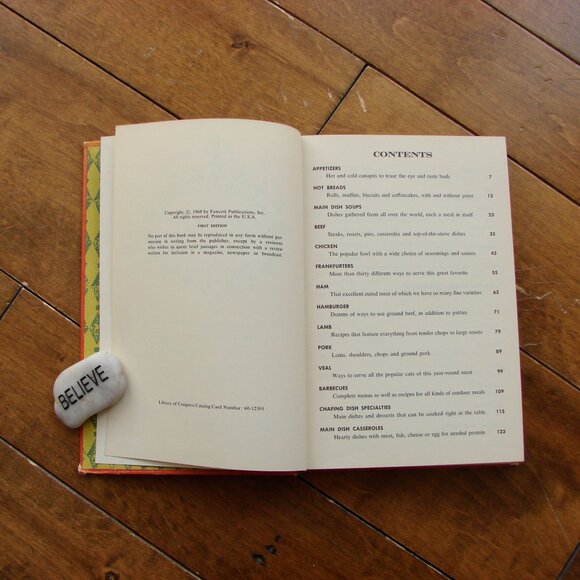 Copyright, ©, 1960 by Fawcett Publications, Inc.
All rights reserved. Printed in the U.S.A.
FIRST EDITION
No part of this book may be reproduced in any form without per-
mission in writing from the publisher, except by a reviewer
who wishes to quote brief passages in connection with a review
written for inclusion in a magazine, newspaper or broadcast.
Library of Congress Catalog Card Number: 60-12301
BELIEVE
CONTENTS
APPETIZERS
Hot and cold canapés to tease the eye and taste buds 7
HOT BREADS
Rolls, muffins, biscuits and coffeecakes, with and without yeast 13
MAIN DISH SOUPS
Dishes gathered from all over the world, each a meal in itself 23
BEEF
Steaks, roasts, pies, casseroles and top-of-the-stove dishes 25
CHICKEN
The popular fowl with a wide choice of seasonings and sauces 43
FRANKFURTERS
More than thirty different ways to serve this great favorite 55
HAM
That excellent cured meat of which we have so many fine varieties 63
HAMBURGER
Dozens of ways to use ground beef, in addition to patties 71
LAMB
Recipes that feature everything from tender chops to large roasts 79
PORK
Loins, shoulders, chops and ground pork 89
VEAL
Ways to serve all the popular cuts of this year-round meat 99
BARBECUES
Complete menus as well as recipes for all kinds of outdoor meals 109
CHAFING DISH SPECIALTIES
Main dishes and desserts that can be cooked right at the table 115
MAIN DISH CASSEROLES
Hearty dishes with meat, fish, cheese or egg for needed protein 123